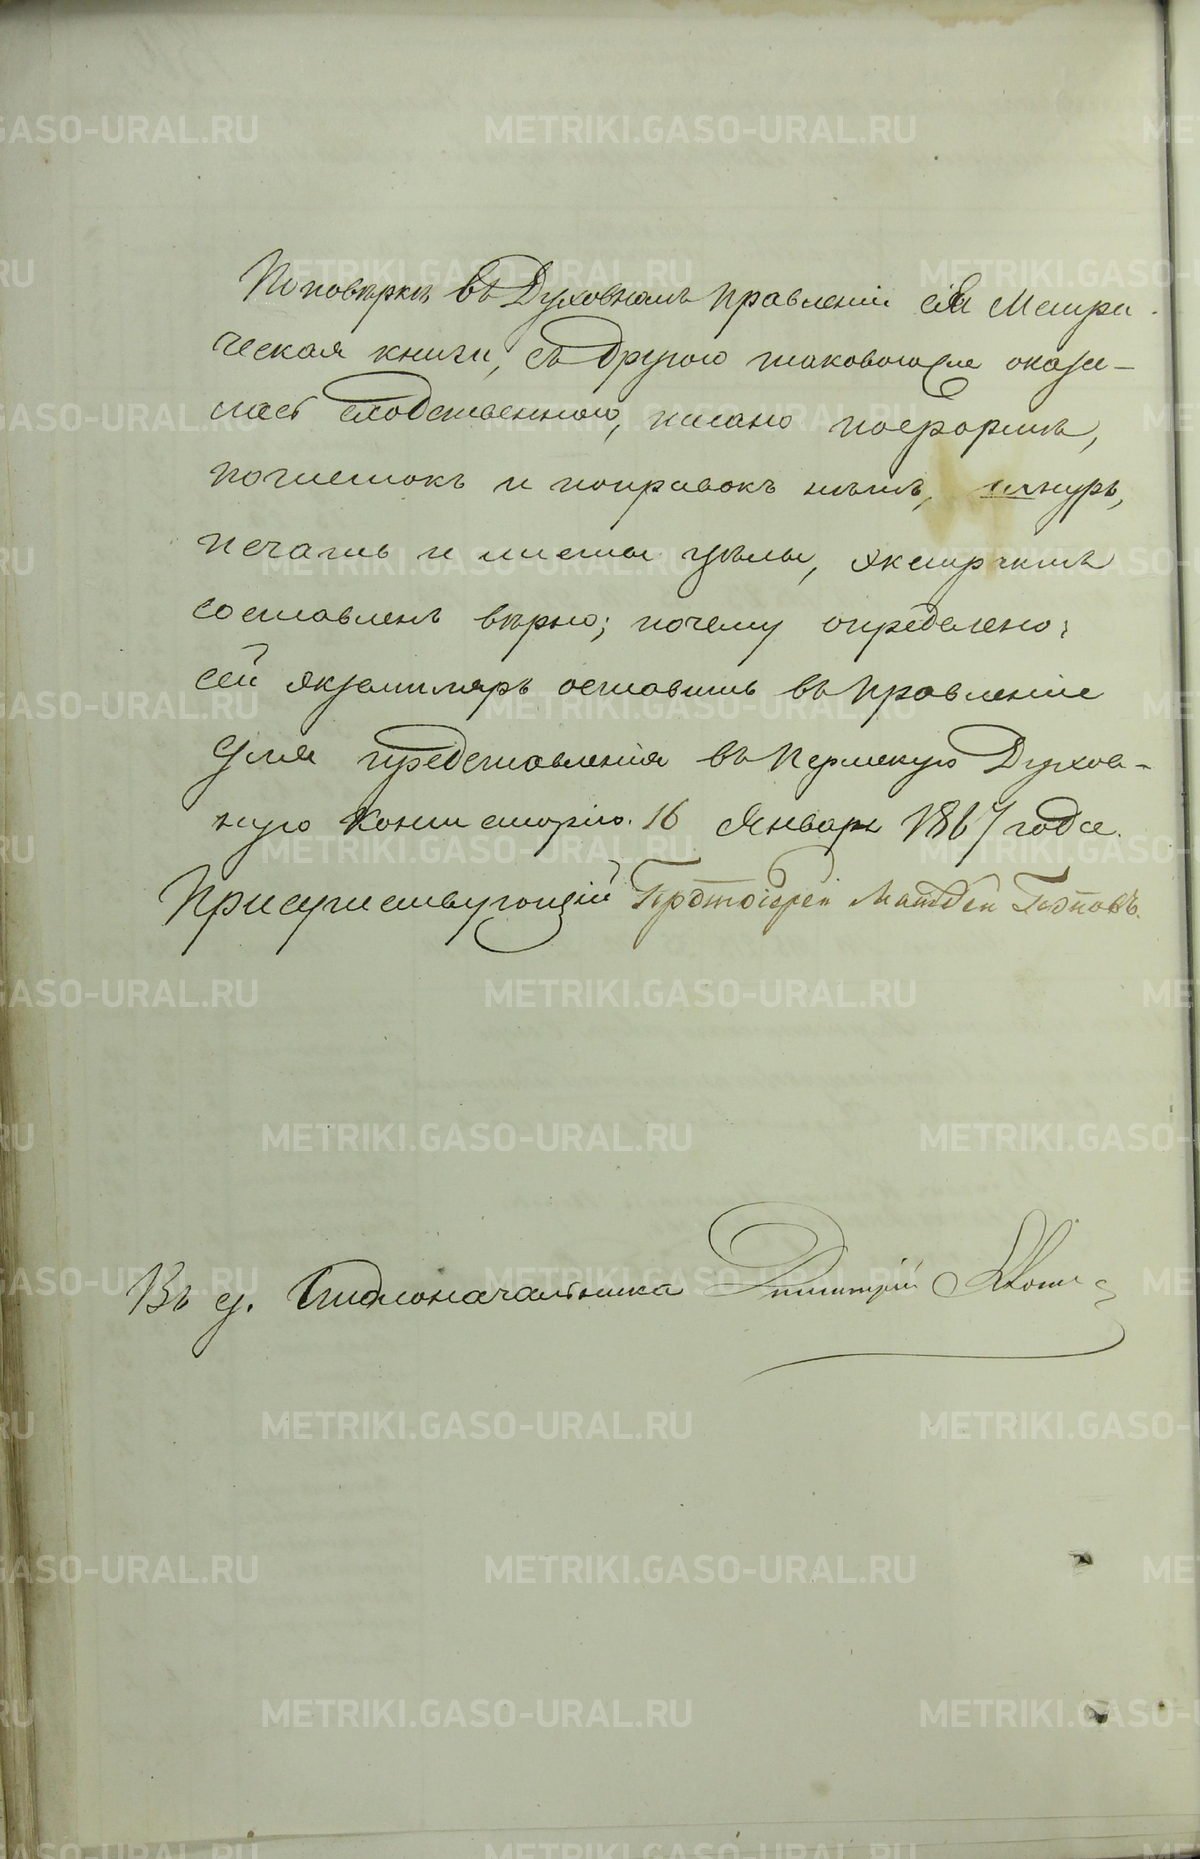 По повѣркѣ въ Духовномъ Правленіи сія Метри-
ческая книга, съ другою таковою же оказа-
лась сходственною, писано по формѣ,
почистокъ и поправокъ нѣтъ, шнуръ,
печать и листы цѣлы, экстрактъ
составленъ вѣрно; почему опредѣлено:
сей экземпляръ оставить въ Правленіи
для представленія въ Пермскую Духов-
ную Консисторію. 16 Января 1867 года.
Присутствующій Протоіерей Матвей Поповъ.
Въ д. Столоначальника Димитрій